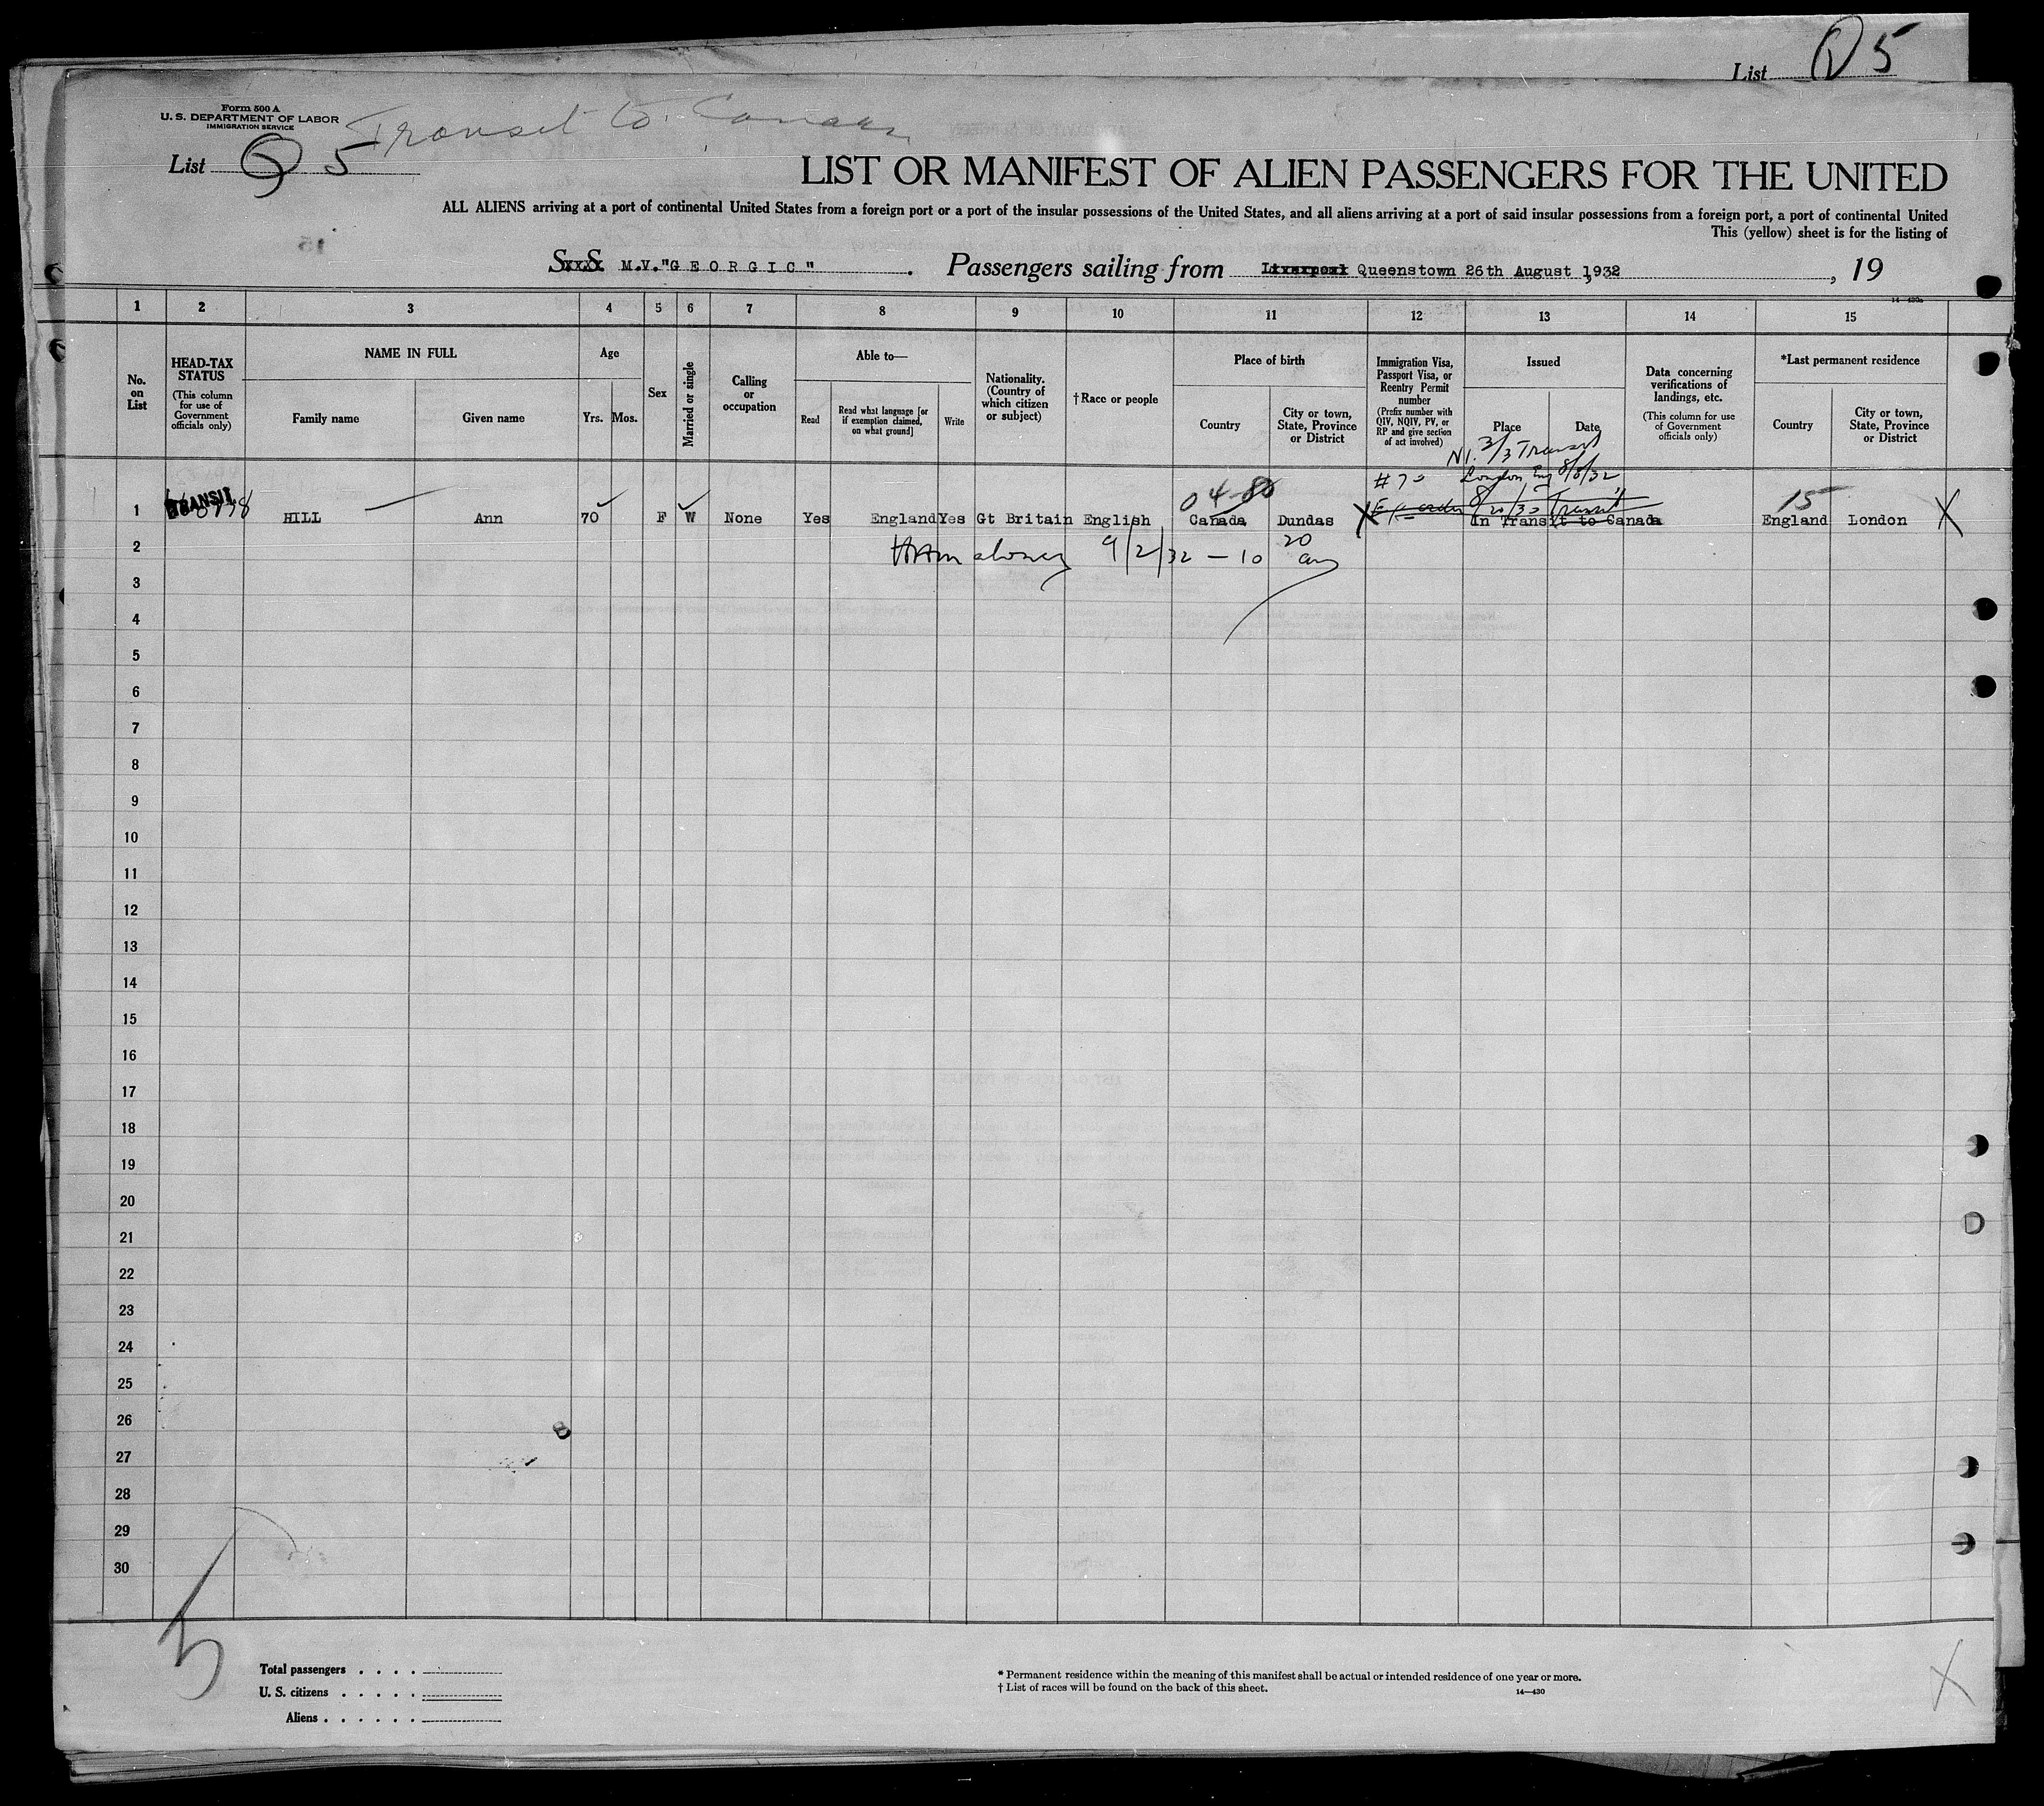 List 5
Form 500 A
U. S. DEPARTMENT OF LABOR
IMMIGRATION SERVICE
Transit to Canada
List 5
LIST OR MANIFEST OF ALIEN PASSENGERS FOR THE UNITED
ALL ALIENS arriving at a port of continental United States from a foreign port or a port of the insular possessions of the United States, and all aliens arriving at a port of said insular possessions from a foreign port, a port of continental United
This (yellow) sheet is for the listing of
S.S. M.V."GEORGIC" . Passengers sailing from Liverpool Queenstown 26th August 1932 , 19
14—430a
1 2 3 4 5 6 7 8 9 10 11 12 13 14 15
No. on List
HEAD-TAX STATUS (This column for use of Government officials only)
NAME IN FULL
Family name Given name
Age
Yrs. Mos.
Sex
Married or single
Calling or occupation
Able to—
Read Read what language [or if exemption claimed, on what ground] Write
Nationality. (Country of which citizen or subject)
†Race or people
Place of birth
Country City or town, State, Province or District
Immigration Visa, Passport Visa, or Reentry Permit number (Prefix number with QIV, NQIV, PV, or RP and give section of act involved)
Issued
Place Date
Data concerning verifications of landings, etc. (This column for use of Government officials only)
*Last permanent residence
Country City or town, State, Province or District
3/3 Transit
#70 London Eng 8/8/32
04-80
15
1 TRANSIT HILL Ann 70 F W None Yes England Yes Gt Britain English Canada Dundas X In Transit to Canada England London X
2 9/2/32 — 10 20 am
3
4
5
6
7
8
9
10
11
12
13
14
15
16
17
18
19
20
21
22
23
24
25
26
27
28
29
30
5
Total passengers . . . .
U. S. citizens . . . . .
Aliens . . . . . .
* Permanent residence within the meaning of this manifest shall be actual or intended residence of one year or more.
† List of races will be found on the back of this sheet.
14—430
X